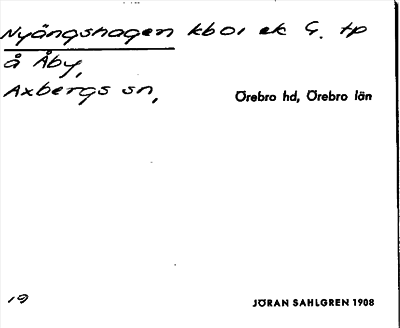 Nyängshagen kbol ek G. tp
å Åby,
Axbergs sn,
Örebro hd, Örebro län
19
JÖRAN SAHLGREN 1908